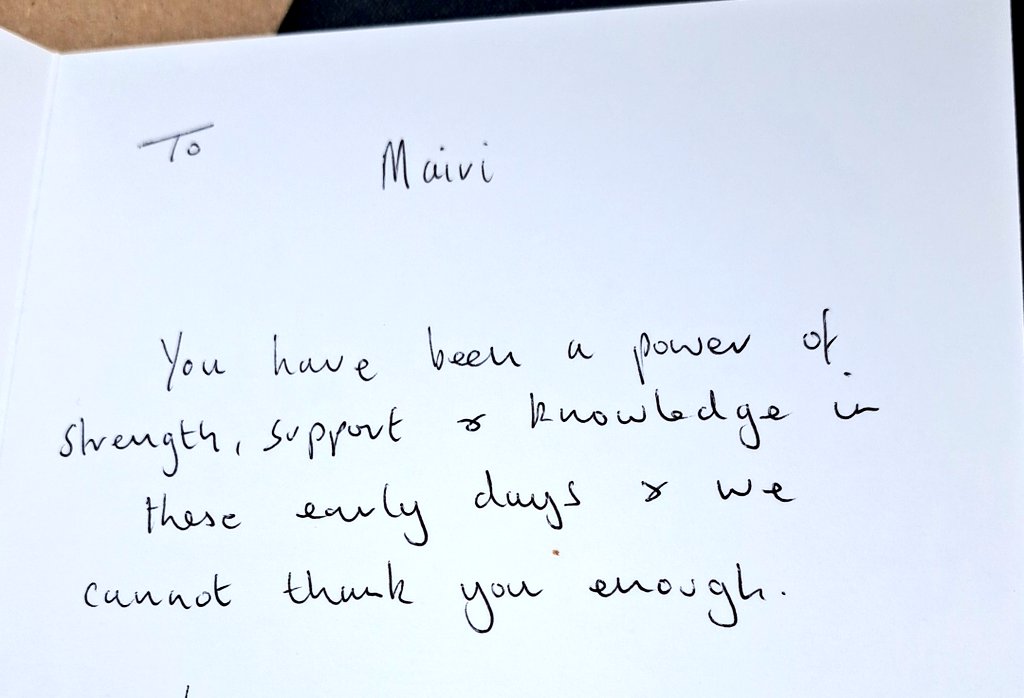 To Mairi
You have been a power of
strength, support & knowledge in
these early days & we
cannot thank you enough.